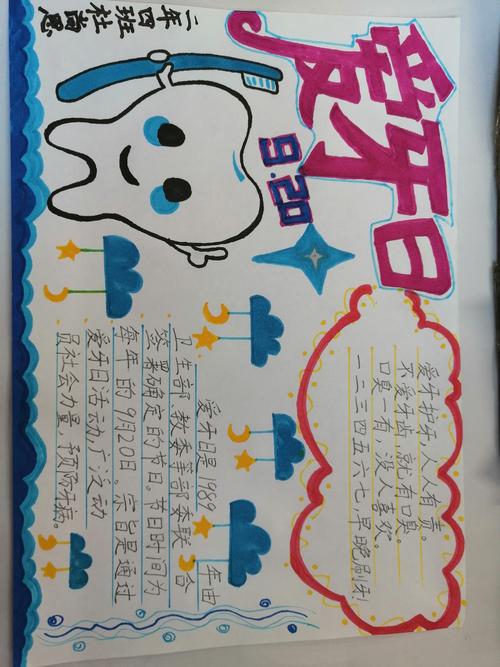 二年四班杜尚恩
爱牙日
9.20
爱牙护牙,人人有责。
不爱牙齿,就有口臭。
口臭一有,没人喜欢。
一二三四五六七,早晚刷牙!
爱牙日是1989年由
卫生部、教委等部委联合
签署确定的节日。节日时间为
每年的9月20日。宗旨是通过
爱牙日活动,广泛动
员社会力量,预防牙病。